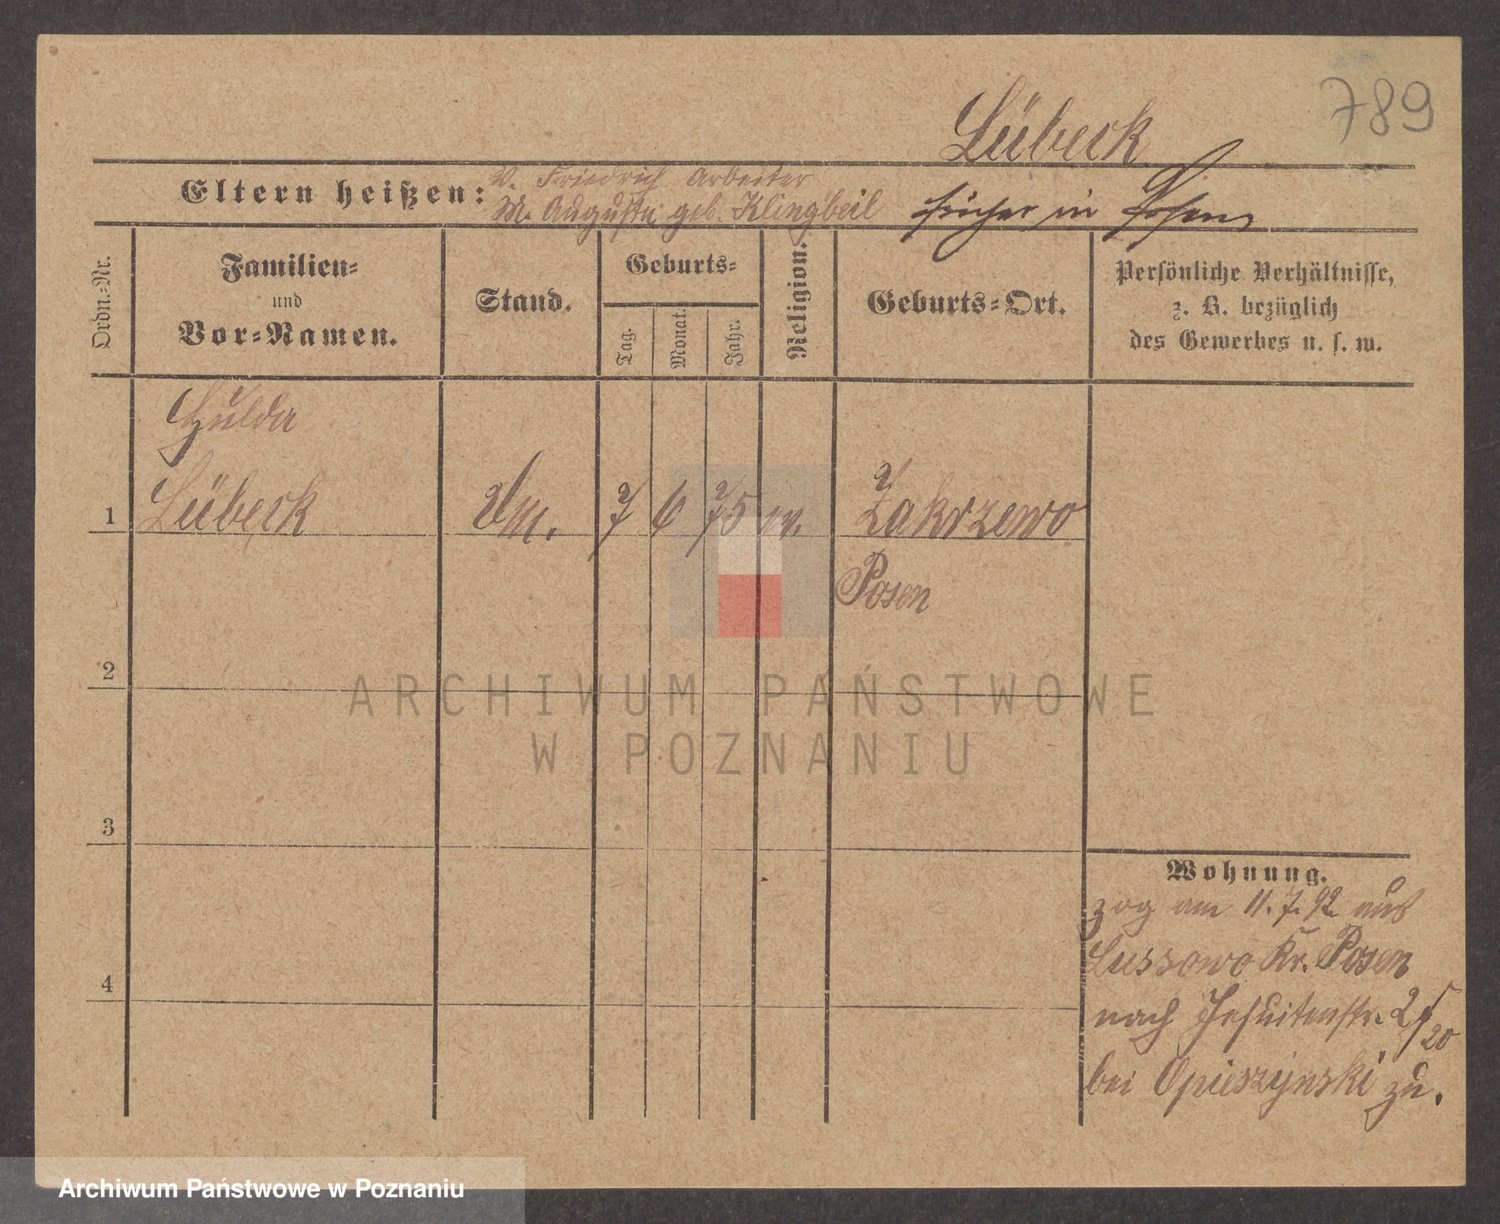 789
Lübeck
Eltern heißen:
V. Friedrich Arbeiter
M. Auguste geb. Klingbeil
früher in Posen
Ordn.-Nr.
Familien-
und
Vor-Namen.
Stand.
Geburts-
Tag.
Monat.
Jahr.
Religion.
Geburts-Ort.
Persönliche Verhältnisse,
z. B. bezüglich
des Gewerbes u. s. w.
Hulda
1 Lübeck 7 6 75 ev. Zakrzewo
Posen
2
ARCHIWUM PAŃSTWOWE
W POZNANIU
3
4
Wohnung.
zog am 11. 7. 92 aus
Lussowo Kr. Posen
nach Jesuitenstr.
bei Opieszynski zu.
Archiwum Państwowe w Poznaniu